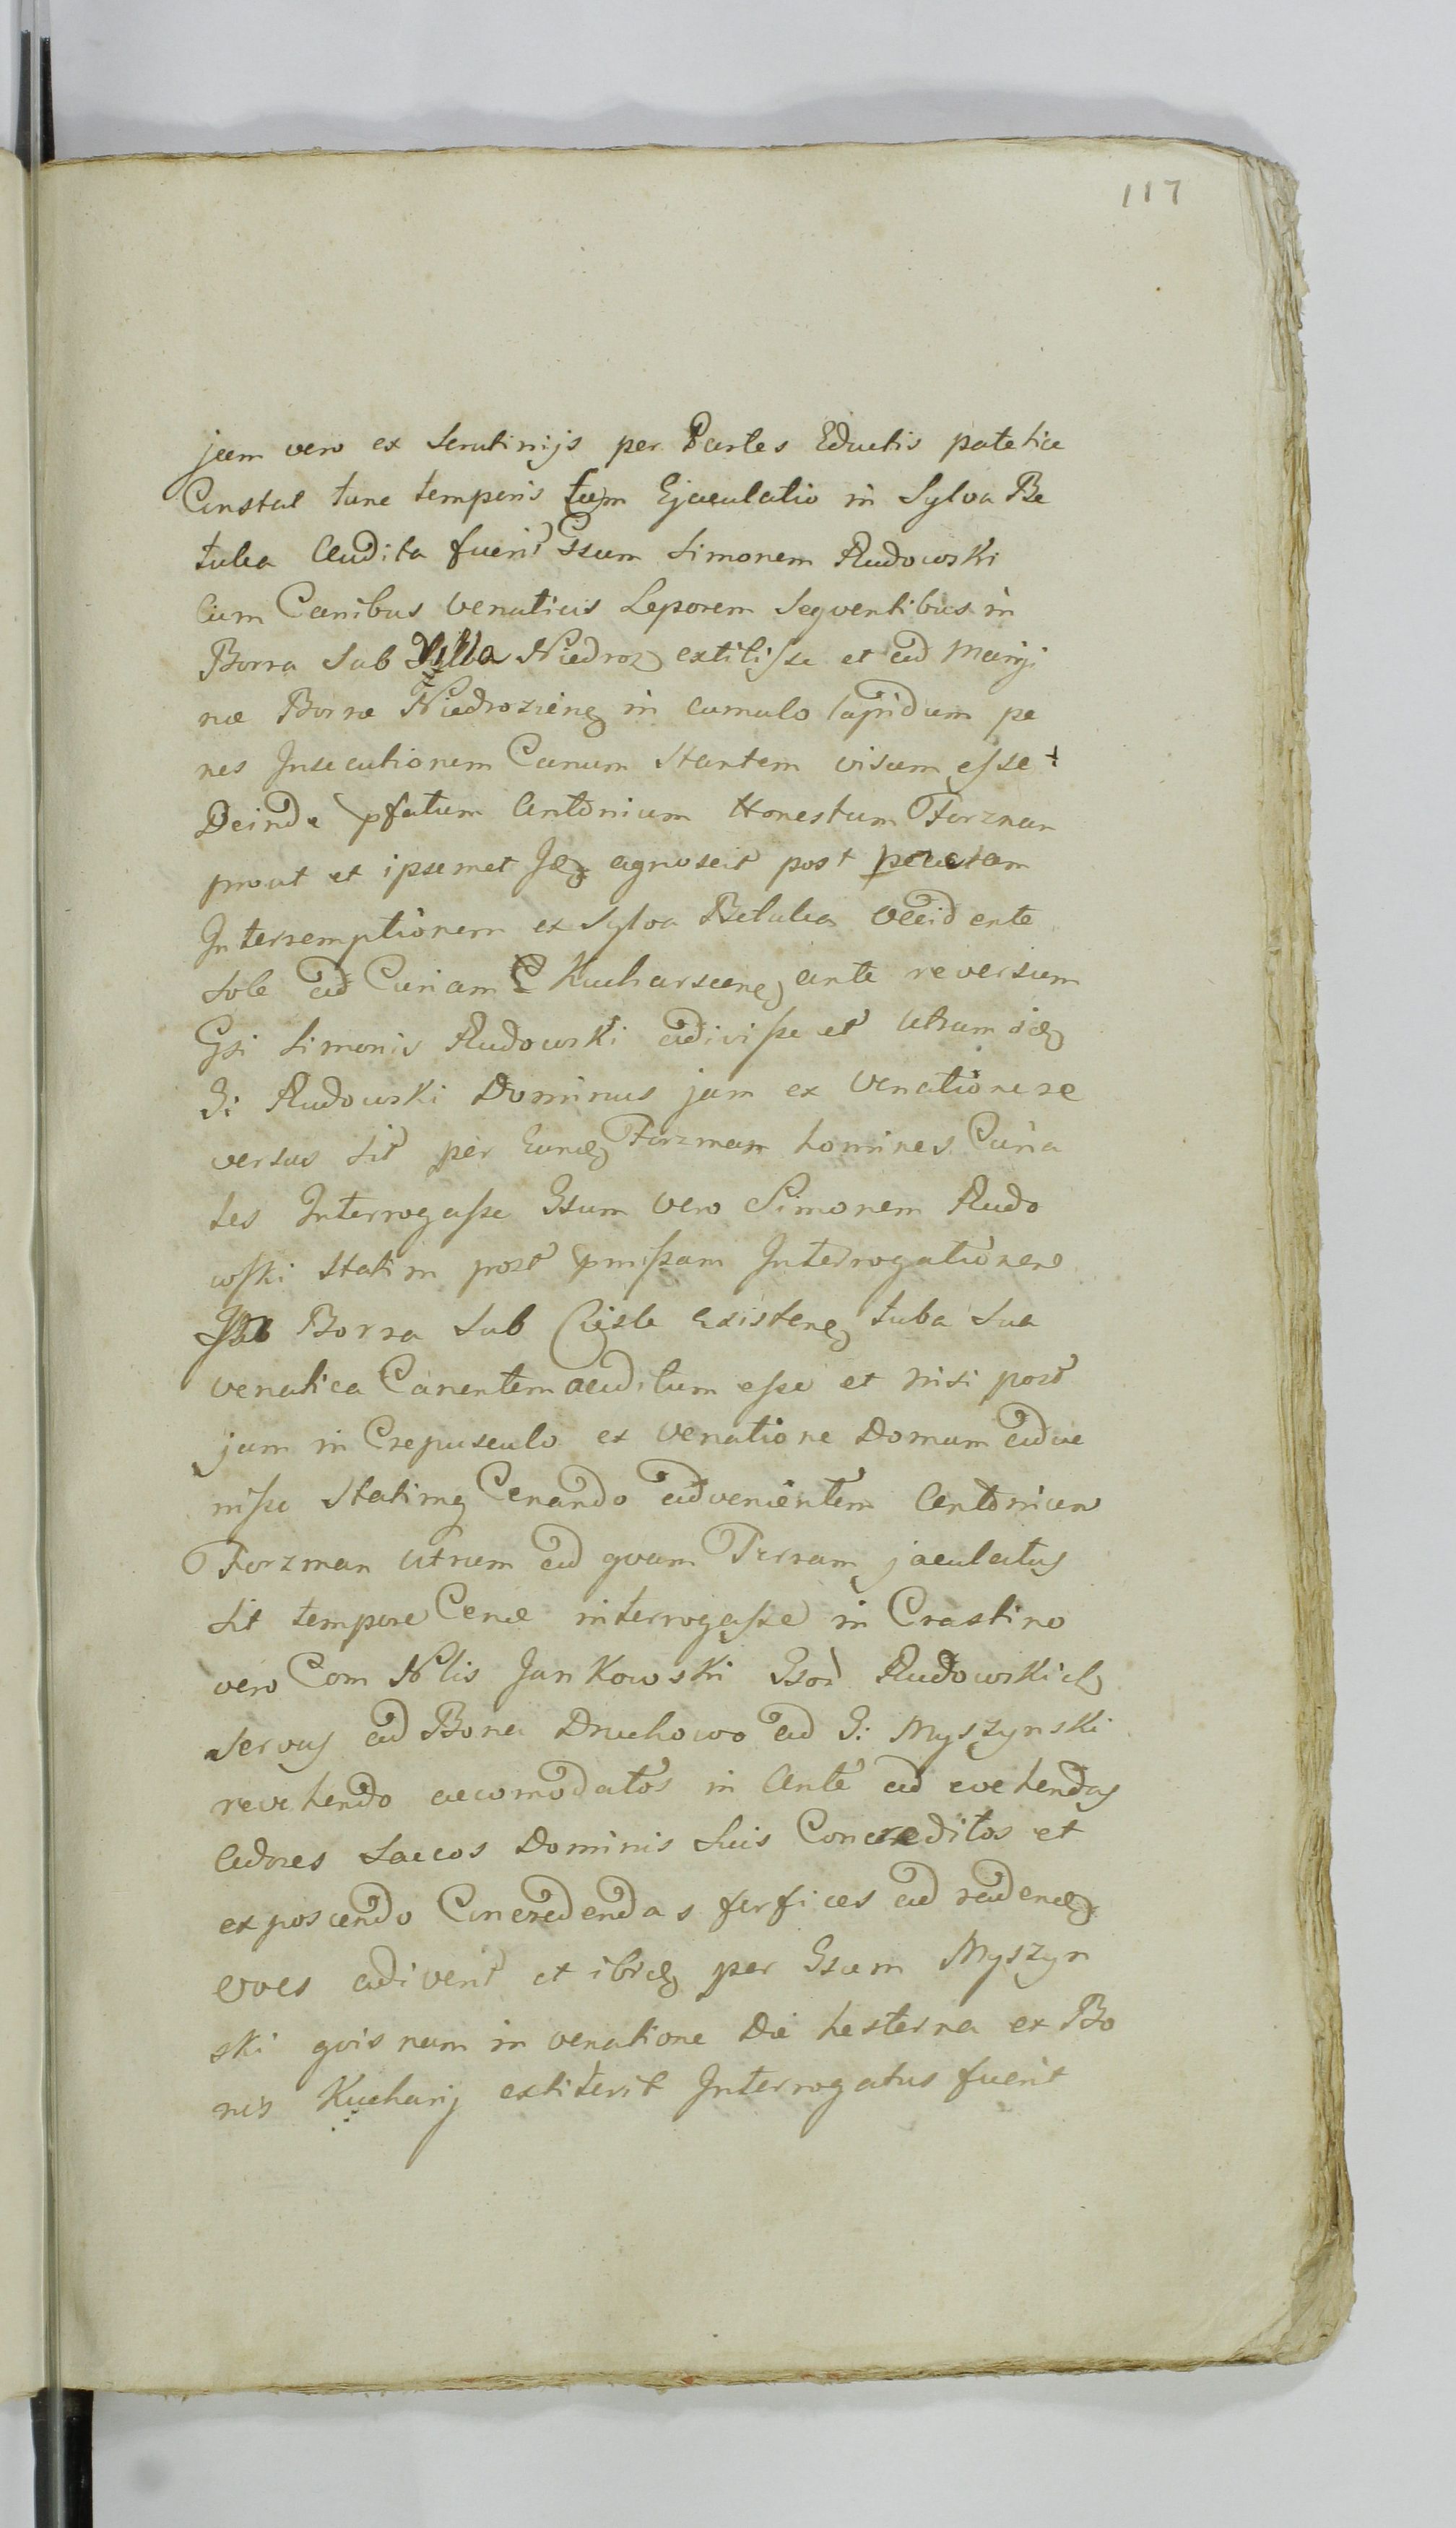 117
jam vero ex Scrutinijs per Partes Eductis patetice
Constat tunc temporis cum Ejaculatio in Sylva Be
tulea Audita fuerit Gsum Simonem Rudowski
Cum Canibus Venaticis Leporem Seqventibus in
Borra Sub Villa Niedroz extitisse et ad Margi
næ Borræ Niedrozien in cumulo lapidum pe
nes Insecutionem Canum Stantem visum esse
Deinde pfatum Antonium Honestum Forzman
prout et ipsemet agnoscit post peractam
Interemptionem ex Sylva Betulea Occidente
Sole ad Curiam Kucharscen ante reversum
Gsi Simonis Rudowski adivisse et Utrum
G: Rudowski Dominus jam ex Venatione re
versus Sit per Forzman homines Curia
les Interrogasse Gsum Vero Simonem Rudo
wski Statim post pmissam Interrogationem
Borra Sub existen tuba Sua
venatica Canentem auditum esse et nisi post
jam in Crepusculo ex Venatione Domum adve
nisse Statimq Cenando advenientem Antonium
Forzman Utrum ad qvam Ferram jaculatus
Sit tempore Cenæ interrogasse in Crastino
vero Com Nlis Jankowski Gsor Rudowskich
Servus ad Bona Druchowo ad G: Myszynski
revehendo accomodatos in Ante ad evehendas
Adores Saccos Dominis Suis Concreditos et
exposcendo Concredendas forfices ad
oves adiverit et per Gsum Myszyn
ski qvisnam in venatione Die hesterna ex Bo
nis Kucharj extiterit Interrogatus fuerit